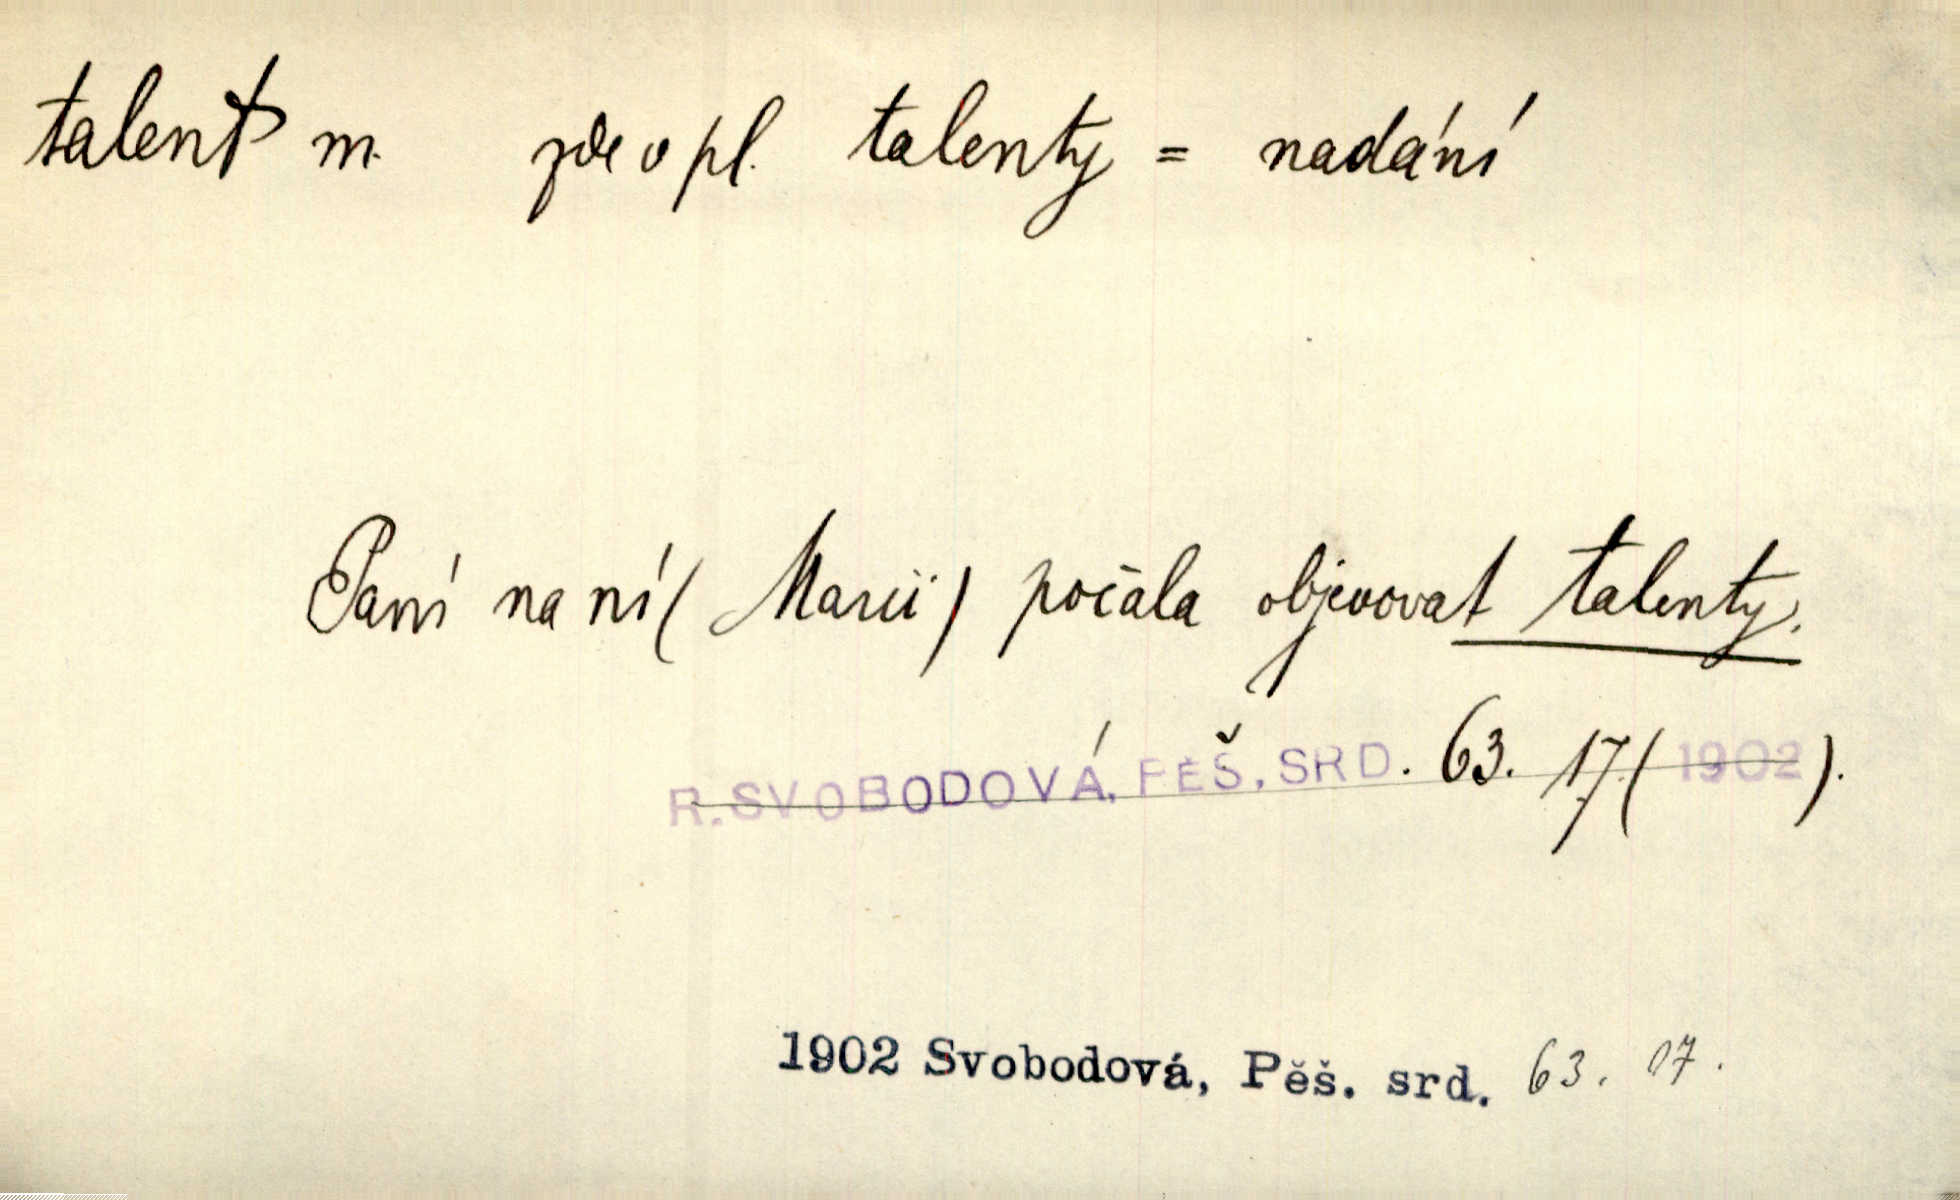 talent m. zde v pl. talenty = nadání
Paní na ní (Marii) počala objevovat talenty.
R. SVOBODOVÁ, PĚŠ. SRD. 63. 17 (1902).
1902 Svobodová, Pěš. srd. 63. 17.